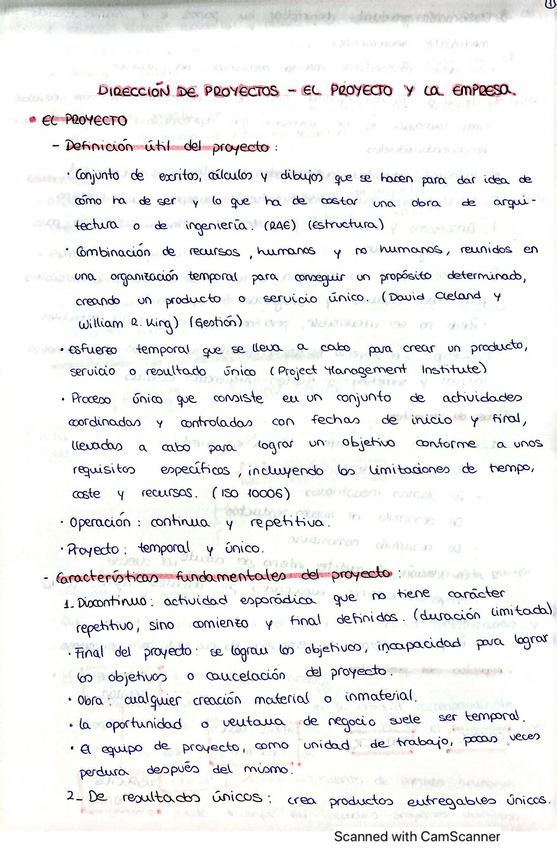 1
DIRECCIÓN DE PROYECTOS - EL PROYECTO Y LA EMPRESA.
• EL PROYECTO
- Definición útil del proyecto:
· Conjunto de escritos, cálculos y dibujos que se hacen para dar idea de
cómo ha de ser y lo que ha de costar una obra de arqui-
tectura o de ingeniería. (RAE) (Estructura)
· Combinación de recursos, humanos y no humanos, reunidos en
una organización temporal para conseguir un propósito determinado,
creando un producto o servicio único. (David Cleland y
William R. King) (Gestión)
· Esfuerzo temporal que se lleva a cabo para crear un producto,
servicio o resultado único (Project Management Institute)
· Proceso único que consiste en un conjunto de actividades
coordinadas y controladas con fechas de inicio y final,
llevadas a cabo para lograr un objetivo conforme a unos
requisitos específicos, incluyendo las limitaciones de tiempo,
coste y recursos. (ISO 10006)
· Operación: continua y repetitiva.
· Proyecto: temporal y único.
- Características fundamentales del proyecto:
1. Discontinuo: actividad esporádica que no tiene carácter
repetitivo, sino comienzo y final definidos. (duración limitada)
· Final del proyecto: se logran los objetivos, incapacidad para lograr
los objetivos o cancelación del proyecto.
· Obra: cualquier creación material o inmaterial.
· La oportunidad o ventana de negocio suele ser temporal.
· El equipo de proyecto, como unidad de trabajo, pocas veces
perdura después del mismo.
2- De resultados únicos: crea productos entregables únicos.
Scanned with CamScanner